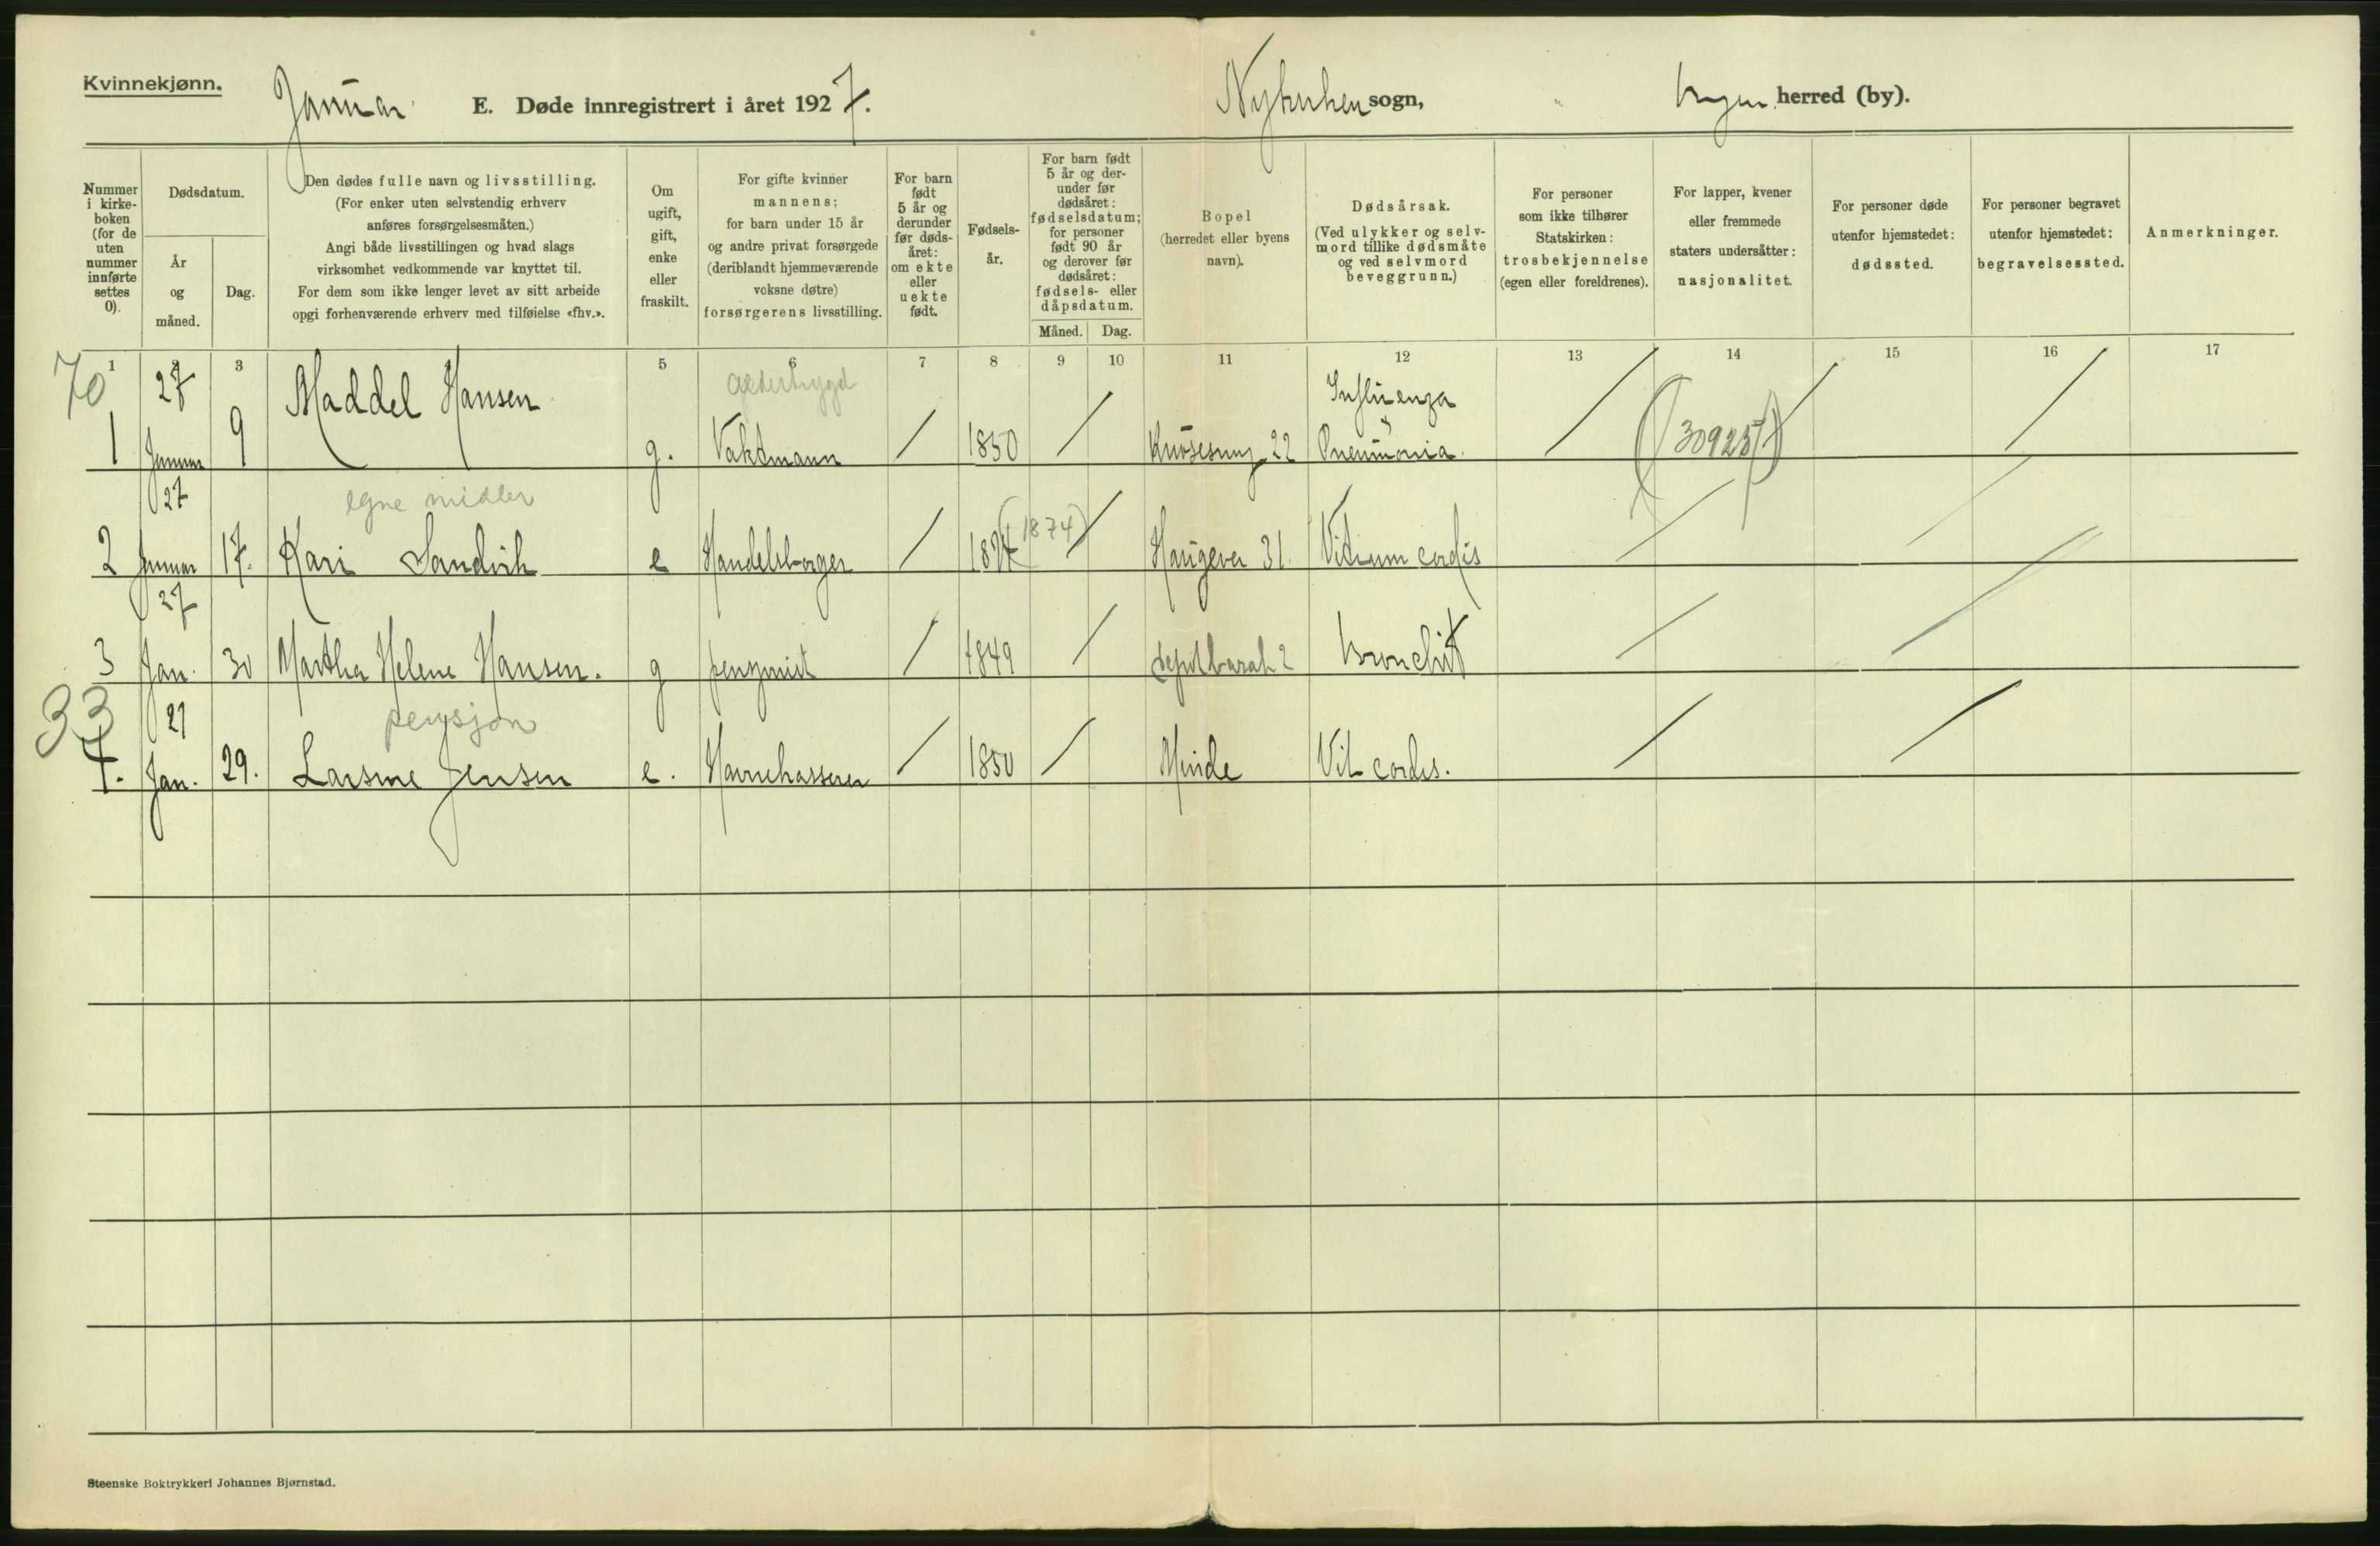 Kvinnekjønn.
Januar E. Døde innregistrert i året 1927. Nykirken sogn, herred (by).
Nummer i kirkeboken (for de uten nummer innførte settes 0).
Dødsdatum.
År og måned.
Dag.
Den dødes fulle navn og livsstilling.
(For enker uten selvstendig erhverv
anføres forsørgelsesmåten.)
Angi både livsstillingen og hvad slags
virksomhet vedkommende var knyttet til.
For dem som ikke lenger levet av sitt arbeide
opgi forhenværende erhverv med tilføielse «fhv.».
Om
ugift,
gift,
enke
eller
fraskilt.
For gifte kvinner
mannens;
for barn under 15 år
og andre privat forsørgede
(deriblandt hjemmeværende
voksne døtre)
forsørgerens livsstilling.
For barn
født
5 år og
derunder
før døds-
året:
om ekte
eller
uekte
født.
Fødsels-
år.
For barn født
5 år og der-
under før
dødsåret:
fødselsdatum;
for personer
født 90 år
og derover før
dødsåret:
fødsels- eller
dåpsdatum.
Måned. Dag.
Bopel
(herredet eller byens
navn).
Dødsårsak.
(Ved ulykker og selv-
mord tillike dødsmåte
og ved selvmord
beveggrunn.)
For personer
som ikke tilhører
Statskirken:
trosbekjennelse
(egen eller foreldrenes).
For lapper, kvener
eller fremmede
staters undersåtter:
nasjonalitet.
For personer døde
utenfor hjemstedet:
dødssted.
For personer begravet
utenfor hjemstedet:
begravelsessted.
Anmerkninger.
1 2 3 5 6 7 8 9 10 11 12 13 14 15 16 17
70 27 Maddel Hansen Influenza
1 Januar 9 g. Vaktmann / 1850 / 22 Pneumonia. / (30925) / /
27 egne midler
2 Januar 17. Kari Sandvik e Handelsborger / (1874) / Haugever 31. Vitium cordis / /
27
3 Jan. 30 Martha Helene Hansen. g / 1849 / Bronchit / /
33 27 pensjon
4. Jan. 29. Larsine Jensen e. Havnekasserer / 1850 / Minde Vit cordis. / /
Steenske Boktrykkeri Johannes Bjørnstad.